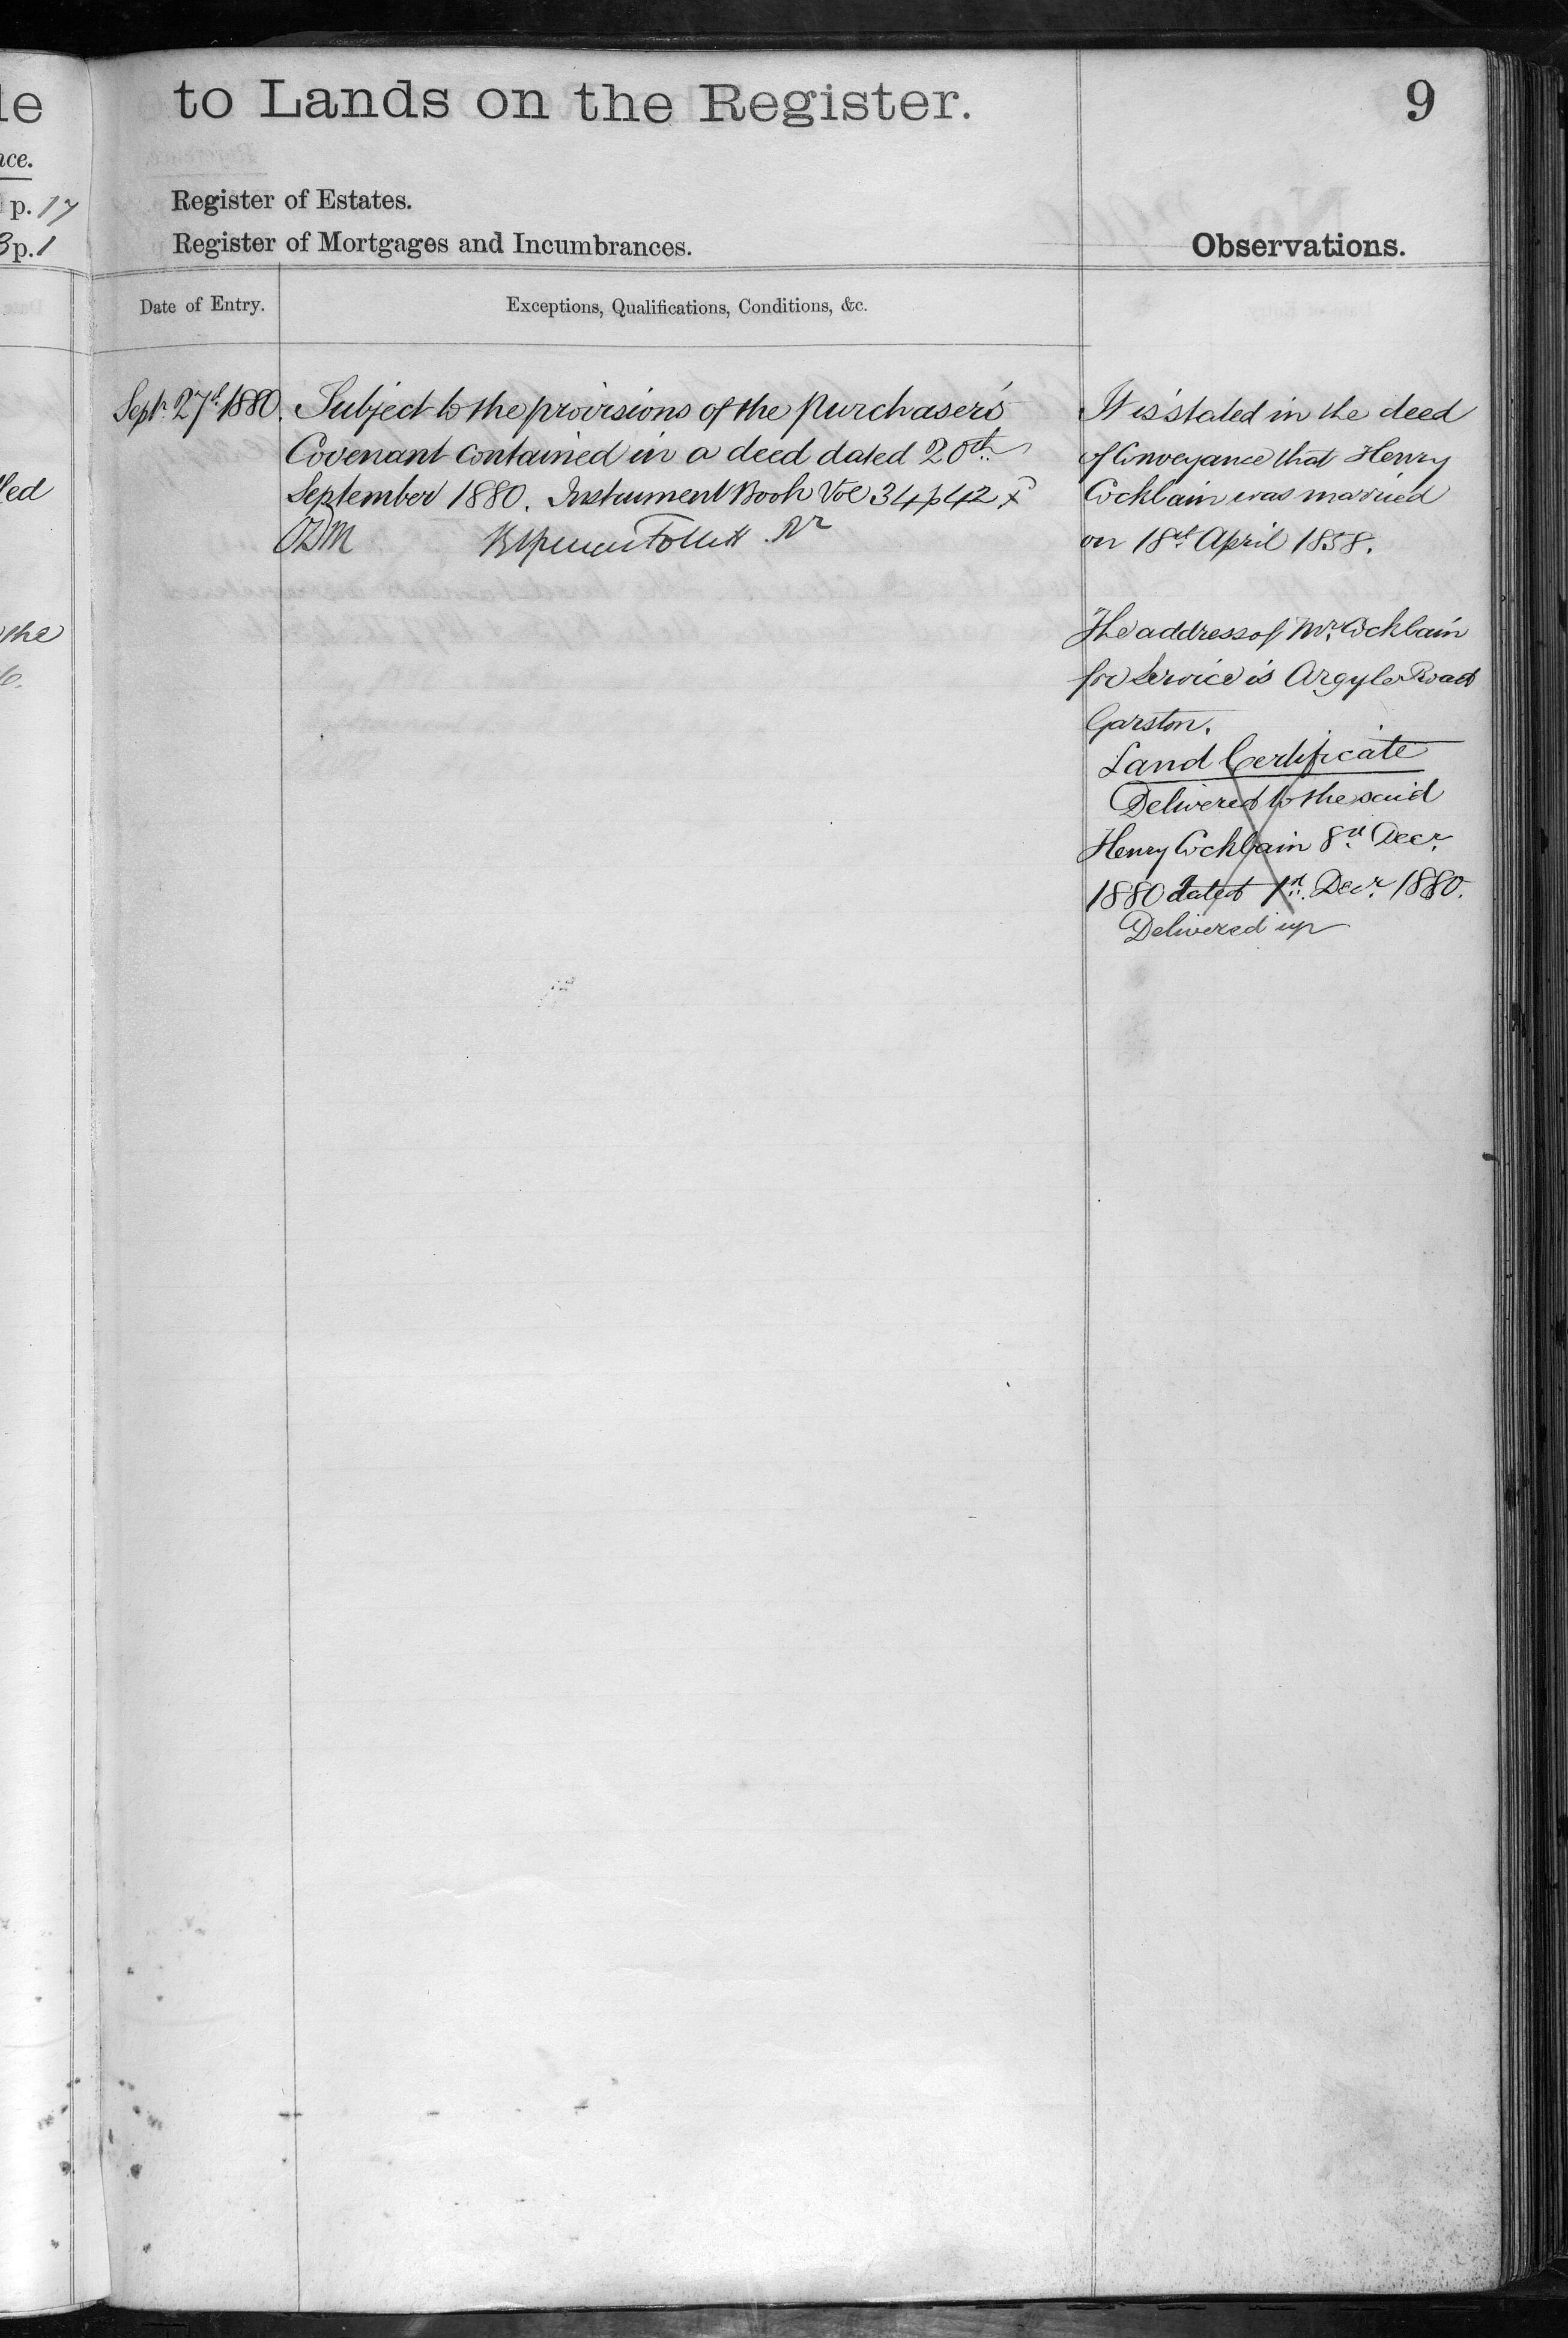 le
nce.
p. 17
3 p. 1
led
the
to Lands on the Register.
9
Register of Estates.
Register of Mortgages and Incumbrances.
Observations.
Date of Entry.
Exceptions, Qualifications, Conditions, &c.
Septr. 27th 1880.
Subject to the provisions of the purchaser's
Covenant contained in a deed dated 20th
September 1880. Instrument Book Vol 34 p 42
Follett Rr
It is stated in the deed
of Conveyance that Henry
Cochbain was married
on 18th April 1858.
The address of Mr. Cochbain
for Service is Argyle Road
Garston.
Land Certificate
Delivered to the said
Henry Cochbain 8th Decr.
1880 dated 1st. Decr. 1880.
Delivered up